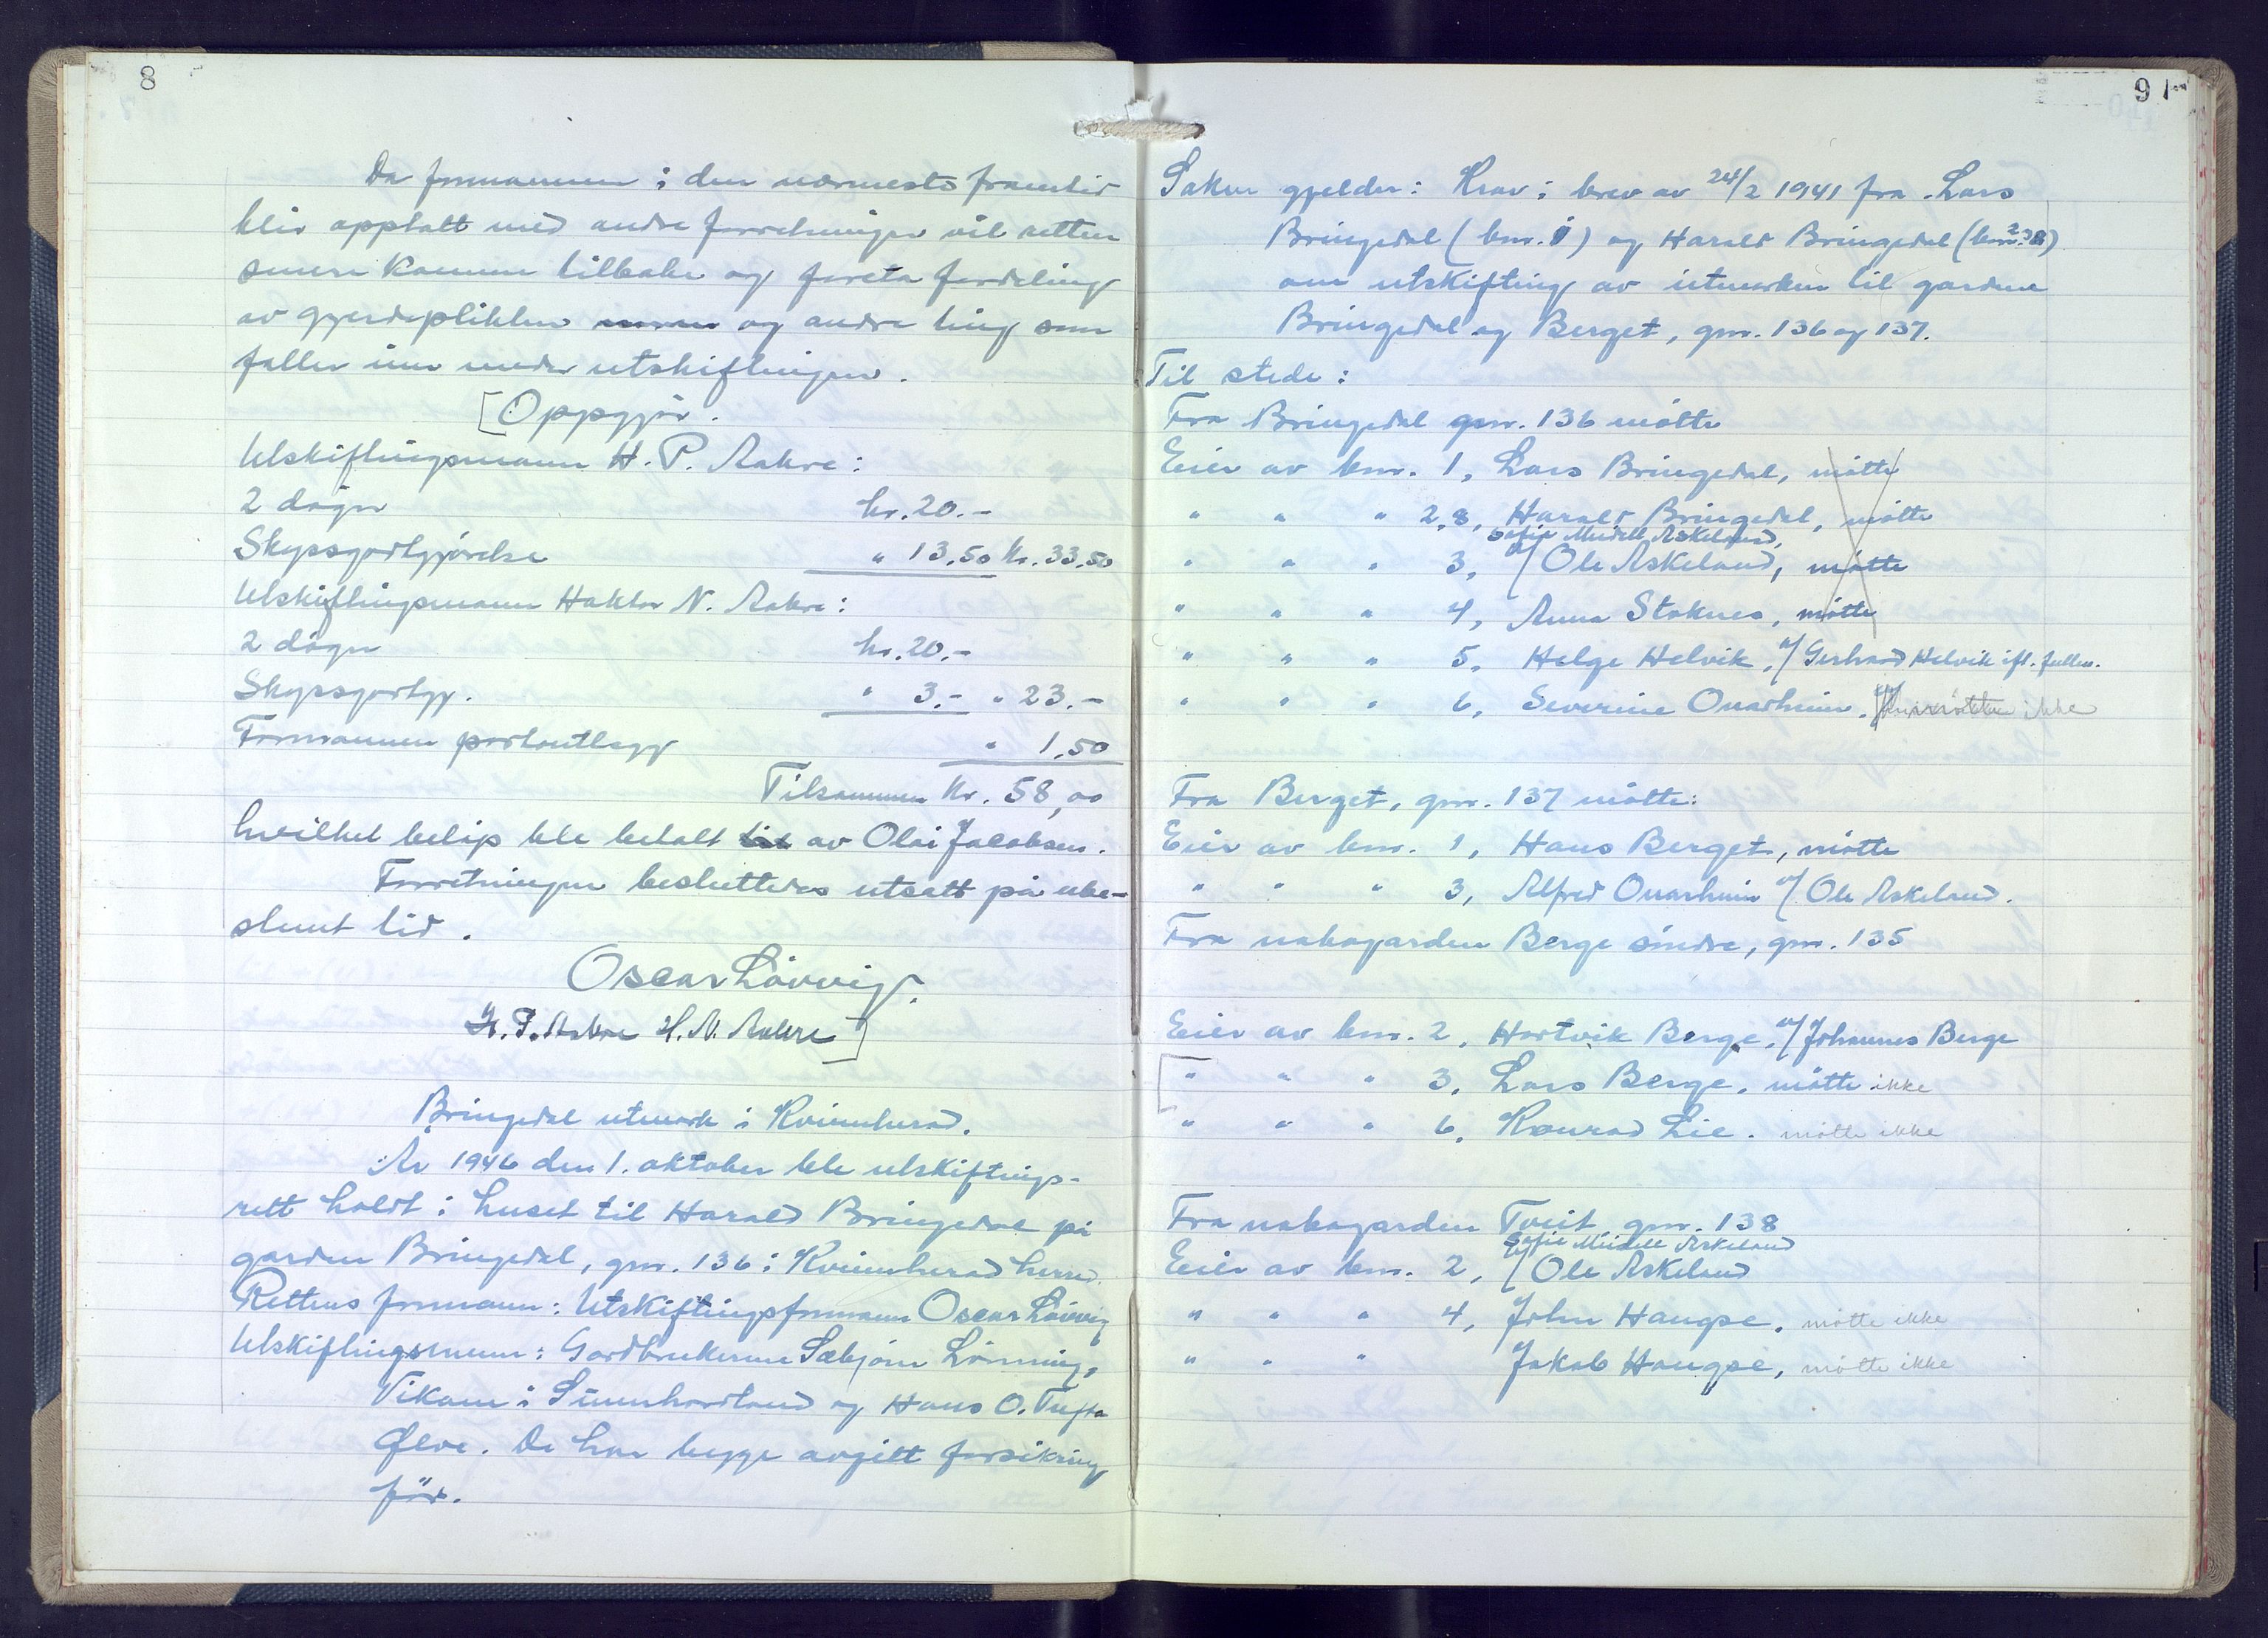 8
Da formannen i den nærmeste framtid
blir opptatt med andre forretninger vil retten
senere komme tilbake og foreta fordeling
av gjerdeplikten og andre ting som
faller inn under utskiftningen.
[Oppgjør.
Utskiftningsmann H. P. Aakre:
2 døgn kr. 20.-
Skyssgodtgjørelse " 13,50 kr. 33,50
Utskiftningsmann Haktor N. Aakre:
2 døgn kr. 20.-
Skyssgodtgj. " 3.- " 23.-
Formannen portoutlegg " 1,50
Tilsammen kr. 58,00
hvilket beløp ble betalt av Olai Jacobsen.
Forretningen besluttedes utsatt på ube-
stemt tid.
Oscar Lövvig.
H. P. Aakre H. N. Aakre]
Bringedal utmark i Kvinnherad.
År 1946 den 1. oktober ble utskiftnings-
rett holdt i huset til Harald Bringedal på
garden Bringedal, gnr. 136 i Kvinnherad herred.
Rettens formann: Utskiftingsformann Oscar Lövvig
Utskiftningsmenn: Gardbrukerne Sæbjørn Lønning,
Vikane i Sunnhordland og Hans O. Tufta
Ølve. De har begge avgitt forsikring
før.
91
Saken gjelder: Krav i brev av 24/2 1941 fra Lars
Bringedal (bnr. 1) og Harald Bringedal (bnr. 2, 8)
om utskifting av utmarken til gardene
Bringedal og Berget, gnr. 136 og 137.
Til stede:
Fra Bringedal gnr. 136 møtte
Eier av bnr. 1, Lars Bringedal, møtte
" " " 2,8, Harald Bringedal, møtte
Sofie Meidell Askeland,
" " " 3, v/ Ole Askeland, møtte
" " " 4, Anna Stoknes, møtte
" " " 5, Helge Helvik, v/ Gerhard Helvik ifl. fullm.
" " " 6, Severine Onarheim, møtte ikke
Fra Berget, gnr. 137 møtte:
Eier av bnr. 1, Hans Berget, møtte
" " " 3, Alfred Onarheim v/ Ole Askeland.
Fra nabogarden Berge søndre, gnr. 135
Eier av bnr. 2, Hartvik Berge, v/ Johannes Berge
[" " " 3, Lars Berge, møtte ikke
" " " 6, Konrad Lie. møtte ikke
Fra nabogarden Tveit gnr. 138
Sofie Meidell Askeland
Eier av bnr. 2, v/ Ole Askeland
" " " 4, John Haugse, møtte ikke
" " " Jakob Haugse, møtte ikke